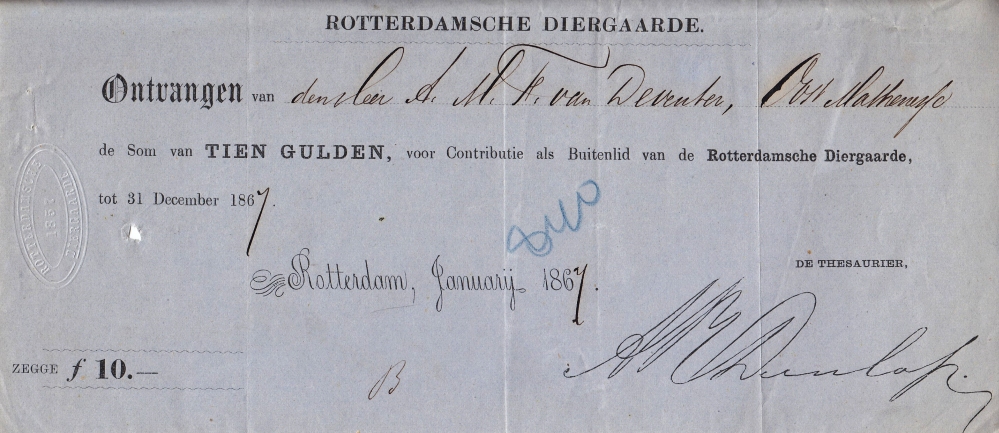 ROTTERDAMSCHE DIERGAARDE.
Ontvangen van den Heer A. M. F. van Deventer, Oost
de Som van TIEN GULDEN, voor Contributie als Buitenlid van de Rotterdamsche Diergaarde,
tot 31 December 1867.
ROTTERDAMSCHE DIERGAARDE
1857
Rotterdam, Januarij 1867.
DE THESAURIER,
Dunlop.
ZEGGE ƒ 10.—
B